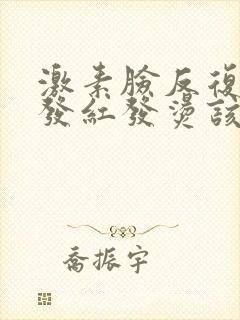 激素臉反復
發紅發燙該
喬振宇